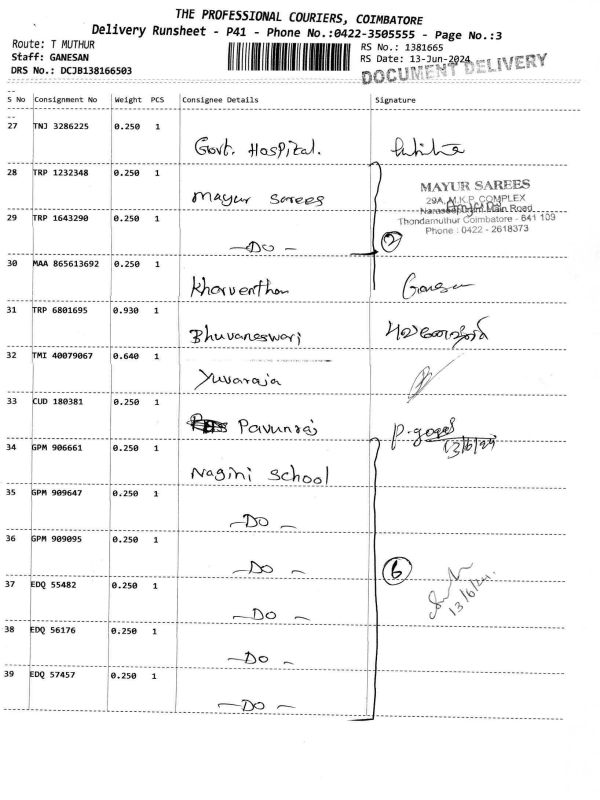 THE PROFESSIONAL COURIERS, COIMBATORE
Delivery Runsheet - P41 - Phone No.:0422-3505555 - Page No.:3
Route: T MUTHUR
Staff: GANESAN
DRS No.: DCJB138166503
RS No.: 1381665
RS Date: 13-Jun-2024
DOCUMENT DELIVERY
S No Consignment No Weight PCS Consignee Details Signature
27 TNJ 3286225 0.250 1
Govt. Hospital.
28 TRP 1232348 0.250 1
Mayur Sarees
MAYUR SAREES
29A, M.K.P. COMPLEX
Main Road
Thondamuthur Coimbatore - 641 109
Phone : 0422 - 2618373
29 TRP 1643290 0.250 1
-DO-
2
30 MAA 865613692 0.250 1
Kharventhan
Ganesan
31 TRP 6801695 0.930 1
Bhuvaneswari
புவனேஸ்வரி
32 TMI 40079067 0.640 1
Yuvaraja
33 CUD 180381 0.250 1
Pavunraj
P. gopal
13/6/24
34 GPM 906661 0.250 1
Nagini School
35 GPM 909647 0.250 1
-DO-
36 GPM 909095 0.250 1
-DO-
6
13/6/24.
37 EDQ 55482 0.250 1
-DO-
38 EDQ 56176 0.250 1
-DO-
39 EDQ 57457 0.250 1
-DO-